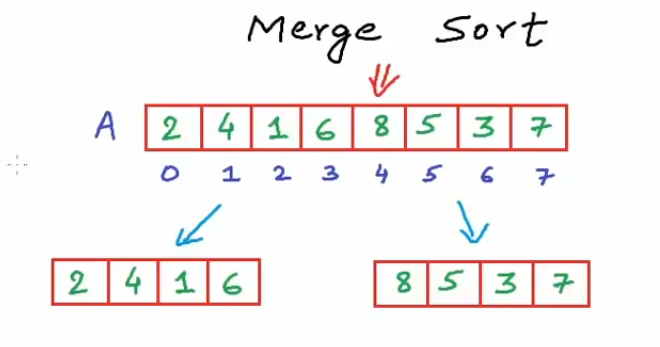 Merge Sort
A 2 4 1 6 8 5 3 7
0 1 2 3 4 5 6 7
2 4 1 6 8 5 3 7